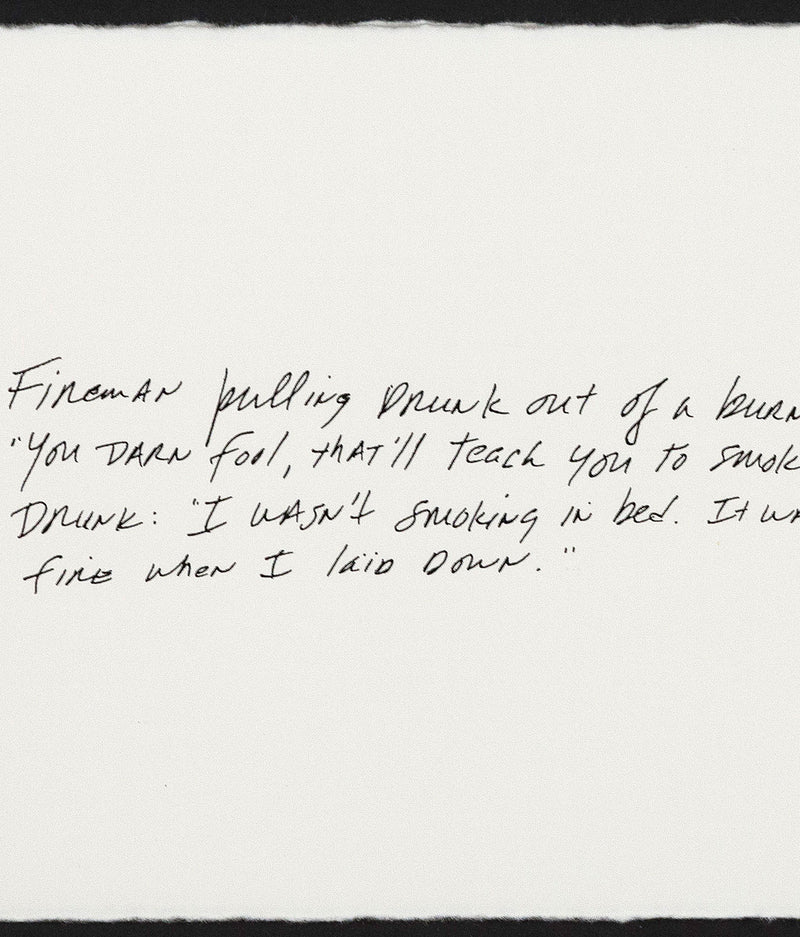 Fireman pulling Drunk out of a burn
"You DARN fool, that'll teach you to smok
Drunk: "I wasn't smoking in bed. It wa
fire when I laid Down."